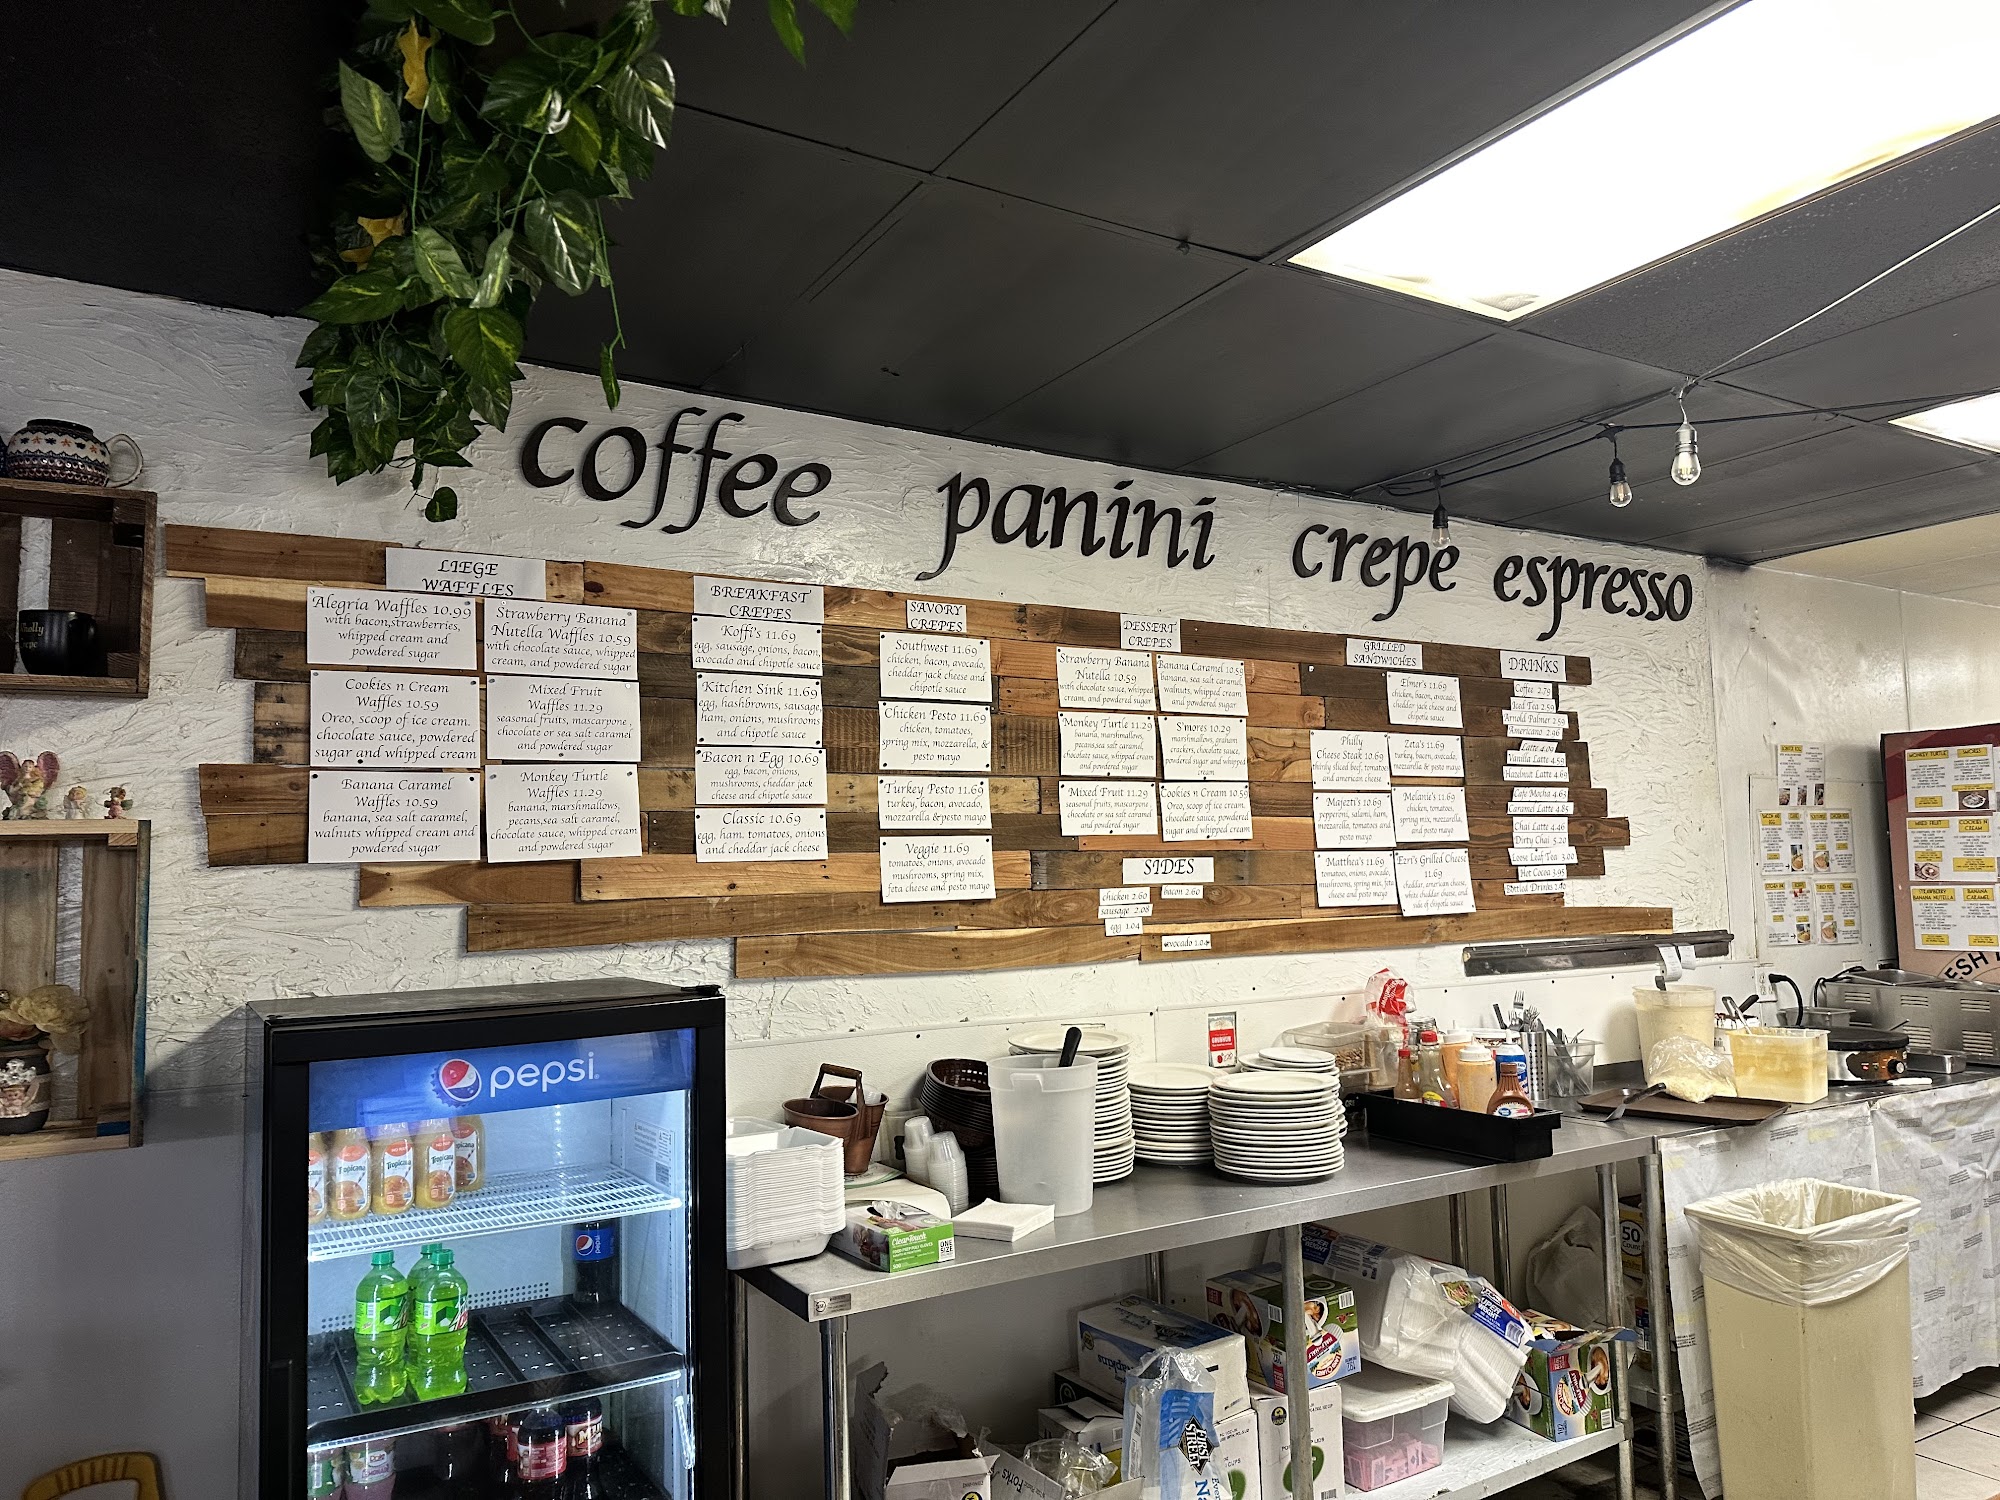 coffee panini crepe espresso
LIEGE
WAFFLES
Alegria Waffles 10.99
with bacon,strawberries,
whipped cream and
powdered sugar
Strawberry Banana
Nutella Waffles 10.59
with chocolate sauce, whipped
cream, and powdered sugar
Cookies n Cream
Waffles 10.59
Oreo, scoop of ice cream.
chocolate sauce, powdered
sugar and whipped cream
Mixed Fruit
Waffles 11.29
seasonal fruits, mascarpone ,
chocolate or sea salt caramel
and powdered sugar
Banana Caramel
Waffles 10.59
banana, sea salt caramel,
walnuts whipped cream and
powdered sugar
Monkey Turtle
Waffles 11.29
banana, marshmallows,
pecans,sea salt caramel,
chocolate sauce, whipped cream
and powdered sugar
BREAKFAST
CREPES
Koffi's 11.69
egg, sausage, onions, bacon,
avocado and chipotle sauce
Kitchen Sink 11.69
egg, hashbrowns, sausage,
ham, onions, mushrooms
and chipotle sauce
Bacon n Egg 10.69
egg, bacon, onions,
mushrooms, cheddar jack
cheese and chipotle sauce
Classic 10.69
egg, ham, tomatoes, onions
and cheddar jack cheese
SAVORY
CREPES
Southwest 11.69
chicken, bacon, avocado,
cheddar jack cheese and
chipotle sauce
Chicken Pesto 11.69
chicken, tomatoes,
spring mix, mozzarella, &
pesto mayo
Turkey Pesto 11.69
turkey, bacon, avocado,
mozzarella &pesto mayo
Veggie 11.69
tomatoes, onions, avocado
mushrooms, spring mix,
feta cheese and pesto mayo
DESSERT
CREPES
Strawberry Banana
Nutella 10.59
with chocolate sauce, whipped
cream, and powdered sugar
Banana Caramel 10.59
banana, sea salt caramel,
walnuts, whipped cream and
powdered sugar
Monkey Turtle 11.29
banana, marshmallows,
pecans,sea salt caramel,
chocolate sauce, whipped cream
and powdered sugar
S'mores 10.29
marshmallows, graham
crackers, chocolate sauce,
powdered sugar and whipped
cream
Mixed Fruit 11.29
seasonal fruits, mascarpone ,
chocolate or sea salt caramel
and powdered sugar
Cookies n Cream 10.59
Oreo, scoop of ice cream.
chocolate sauce, powdered
sugar and whipped cream
SIDES
chicken 2.60
bacon 2.60
sausage 2.08
egg 1.04
avocado 1.04
GRILLED
SANDWICHES
Elmer's 11.69
chicken, bacon, avocado,
cheddar jack cheese and
chipotle sauce
Philly
Cheese Steak 10.69
thinly sliced beef, tomatoes
and american cheese
Zeta's 11.69
turkey, bacon, avocado,
mozzarella & pesto mayo
Majezti's 10.69
pepperoni, salami, ham,
mozzarella, tomatoes and
pesto mayo
Melanie's 11.69
chicken, tomatoes,
spring mix, mozzarella,
and pesto mayo
Matthea's 11.69
tomatoes, onions, avocado,
mushrooms, spring mix, feta
cheese and pesto mayo
Ezri's Grilled Cheese
11.69
cheddar, american cheese,
white cheddar cheese, and
side of chipotle sauce
DRINKS
Coffee 2.79
Iced Tea 2.59
Arnold Palmer 2.59
Americano 2.96
Latte 4.09
Vanilla Latte 4.59
Hazelnut Latte 4.69
Cafe Mocha 4.63
Caramel Latte 4.85
Chai Latte 4.46
Dirty Chai 5.20
Loose Leaf Tea 3.00
Hot Cocoa 3.95
Bottled Drinks 2.40
MONKEY TURTLE
SMORES
MIXED FRUIT
COOKIES N
CREAM
STRAWBERRY
BANANA NUTELLA
BANANA
CARAMEL
pepsi
Tropicana
Tropicana
Tropicana
pepsi
ClearTouch
ONE
SIZE
50